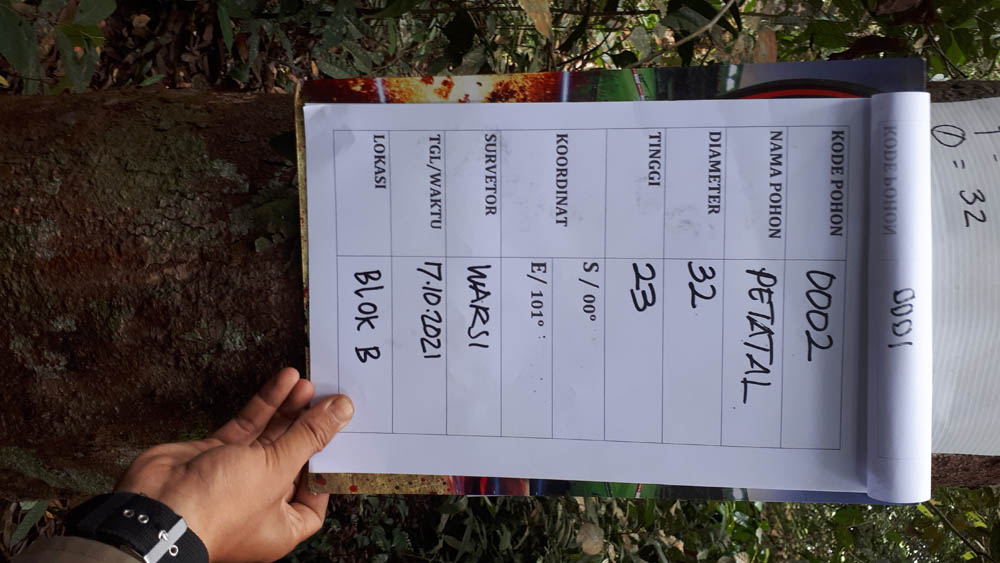 Ø = 32
0001
KODE POHON
KODE POHON 0002
NAMA POHON PETATAL
DIAMETER 32
TINGGI 23
KOORDINAT S / 00°
E/ 101°
SURVETOR WARSI
TGL/WAKTU 7.10.2021
LOKASI BLOK B